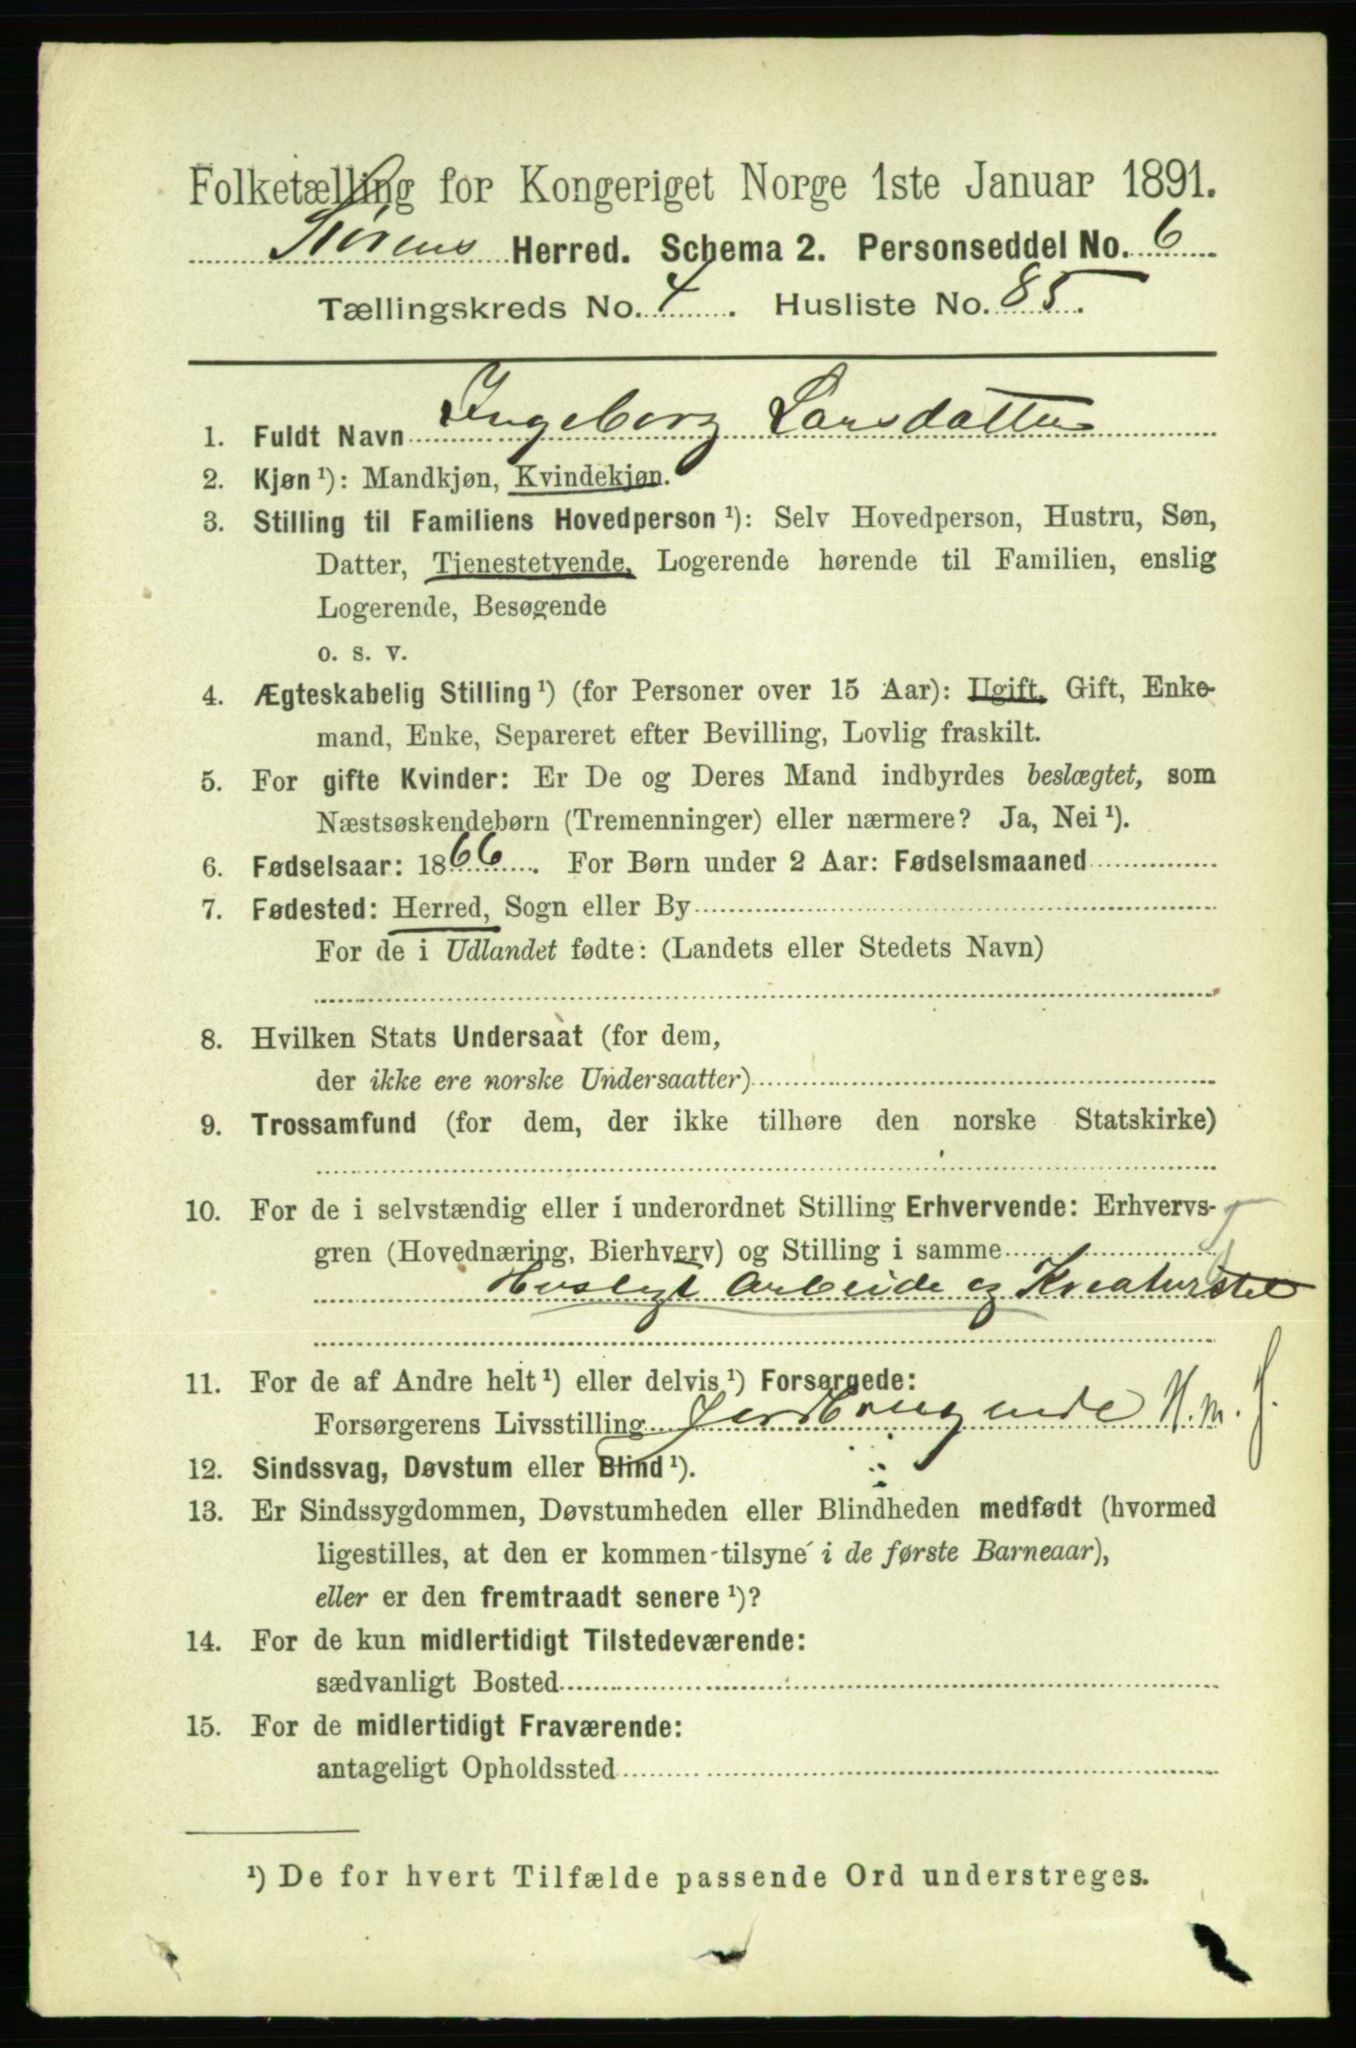 Folketælling for Kongeriget Norge 1ste Januar 1891.
Størens Herred. Schema 2. Personseddel No. 6
Tællingskreds No. 4. Husliste No. 85.
1. Fuldt Navn Ingeborg Larsdatter
2. Kjøn ¹): Mandkjøn, Kvindekjøn.
3. Stilling til Familiens Hovedperson ¹): Selv Hovedperson, Hustru, Søn,
Datter, Tjenestetyende, Logerende hørende til Familien, enslig
Logerende, Besøgende
o. s. v.
4. Ægteskabelig Stilling ¹) (for Personer over 15 Aar): Ugift, Gift, Enke-
mand, Enke, Separeret efter Bevilling, Lovlig fraskilt.
5. For gifte Kvinder: Er De og Deres Mand indbyrdes beslægtet, som
Næstsøskendebørn (Tremenninger) eller nærmere? Ja, Nei ¹).
6. Fødselsaar: 1866. For Børn under 2 Aar: Fødselsmaaned
7. Fødested: Herred, Sogn eller By
For de i Udlandet fødte: (Landets eller Stedets Navn)
8. Hvilken Stats Undersaat (for dem,
der ikke ere norske Undersaatter)
9. Trossamfund (for dem, der ikke tilhøre den norske Statskirke)
10. For de i selvstændig eller i underordnet Stilling Erhvervende: Erhvervs-
gren (Hovednæring, Bierhverv) og Stilling i samme
Husligt Arbeide og Kreaturstel
11. For de af Andre helt ¹) eller delvis ¹) Forsørgede:
Forsørgerens Livsstilling H. m. J.
12. Sindssvag, Døvstum eller Blind ¹).
13. Er Sindssygdommen, Døvstumheden eller Blindheden medfødt (hvormed
ligestilles, at den er kommen tilsyne i de første Barneaar),
eller er den fremtraadt senere ¹)?
14. For de kun midlertidigt Tilstedeværende:
sædvanligt Bosted
15. For de midlertidigt Fraværende:
antageligt Opholdssted
¹) De for hvert Tilfælde passende Ord understreges.